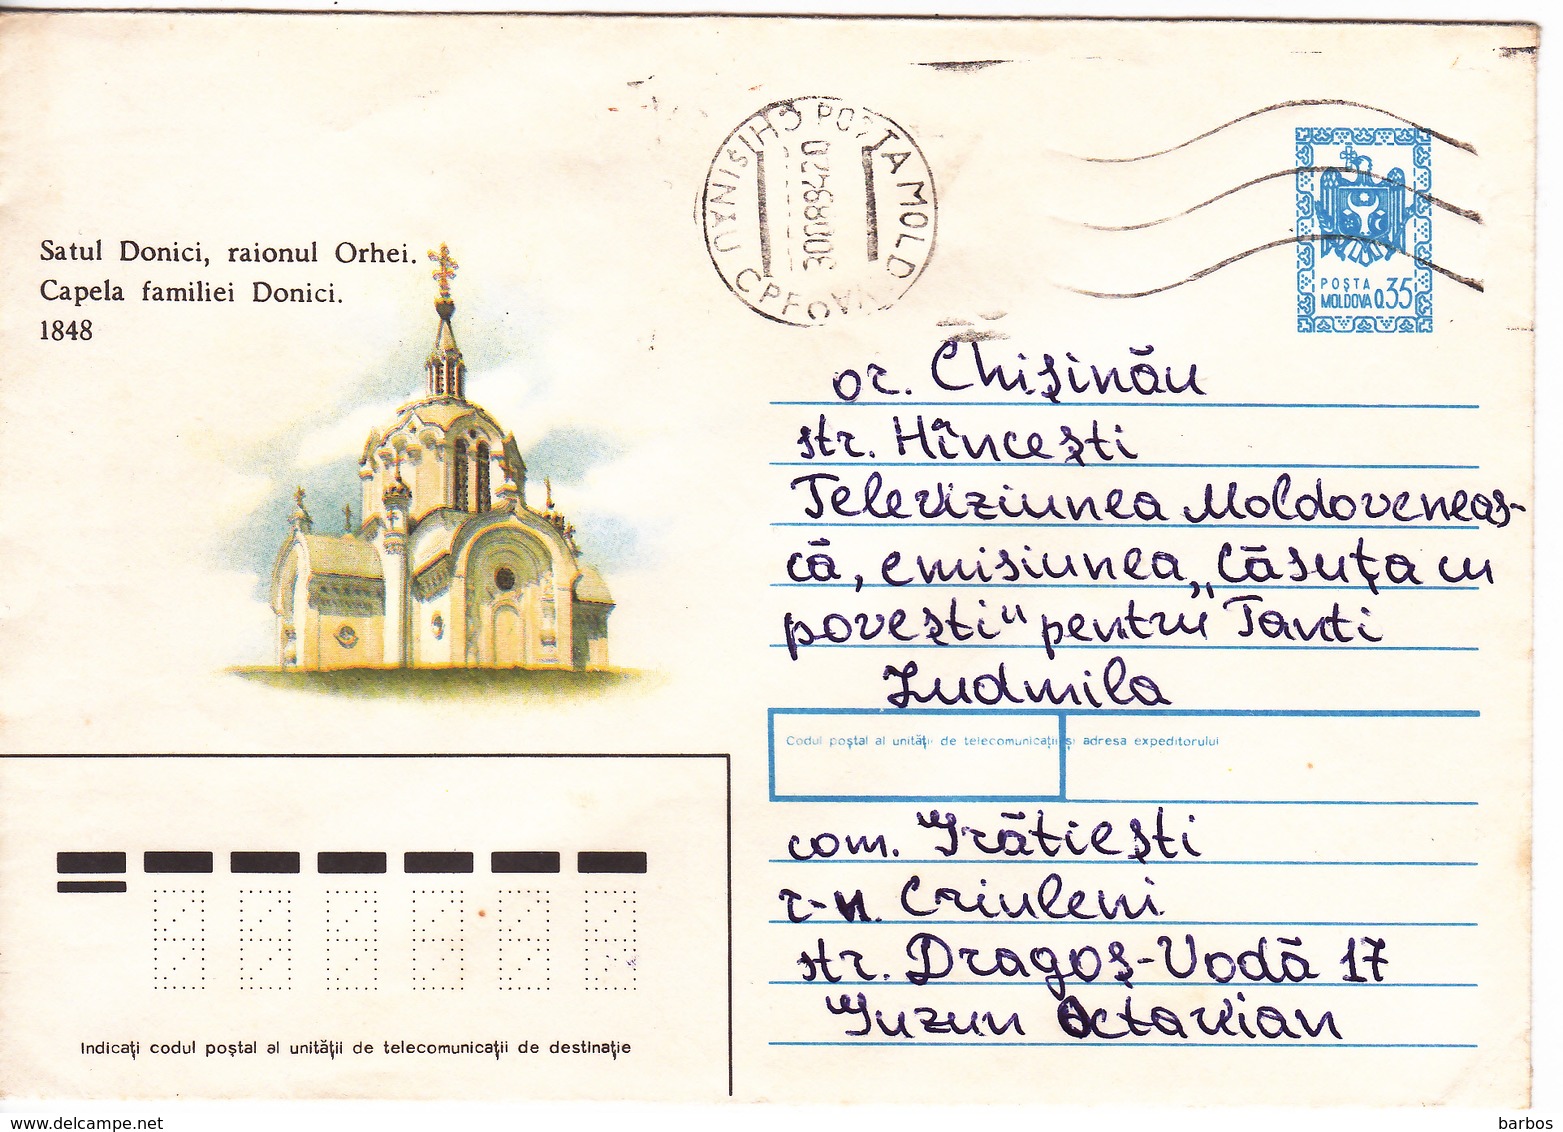 Satul Donici, raionul Orhei.
Capela familiei Donici.
1848
CHIȘINĂU POȘTA MOLDOVA
300894 20
POȘTA
MOLDOVA 0.35
or. Chişinău
str. Hînceşti
Televiziunea Moldoveneas-
că, emisiunea „Căsuţa cu
poveşti" pentru Tanti
Ludmila
Codul poştal al unităţii de telecomunicaţii şi adresa expeditorului
com. Grătieşti
r-n. Criuleni
str. Dragoş-Vodă 17
Guzun Octavian
Indicaţi codul poştal al unităţii de telecomunicaţii de destinaţie
www.delcampe.net
barbos